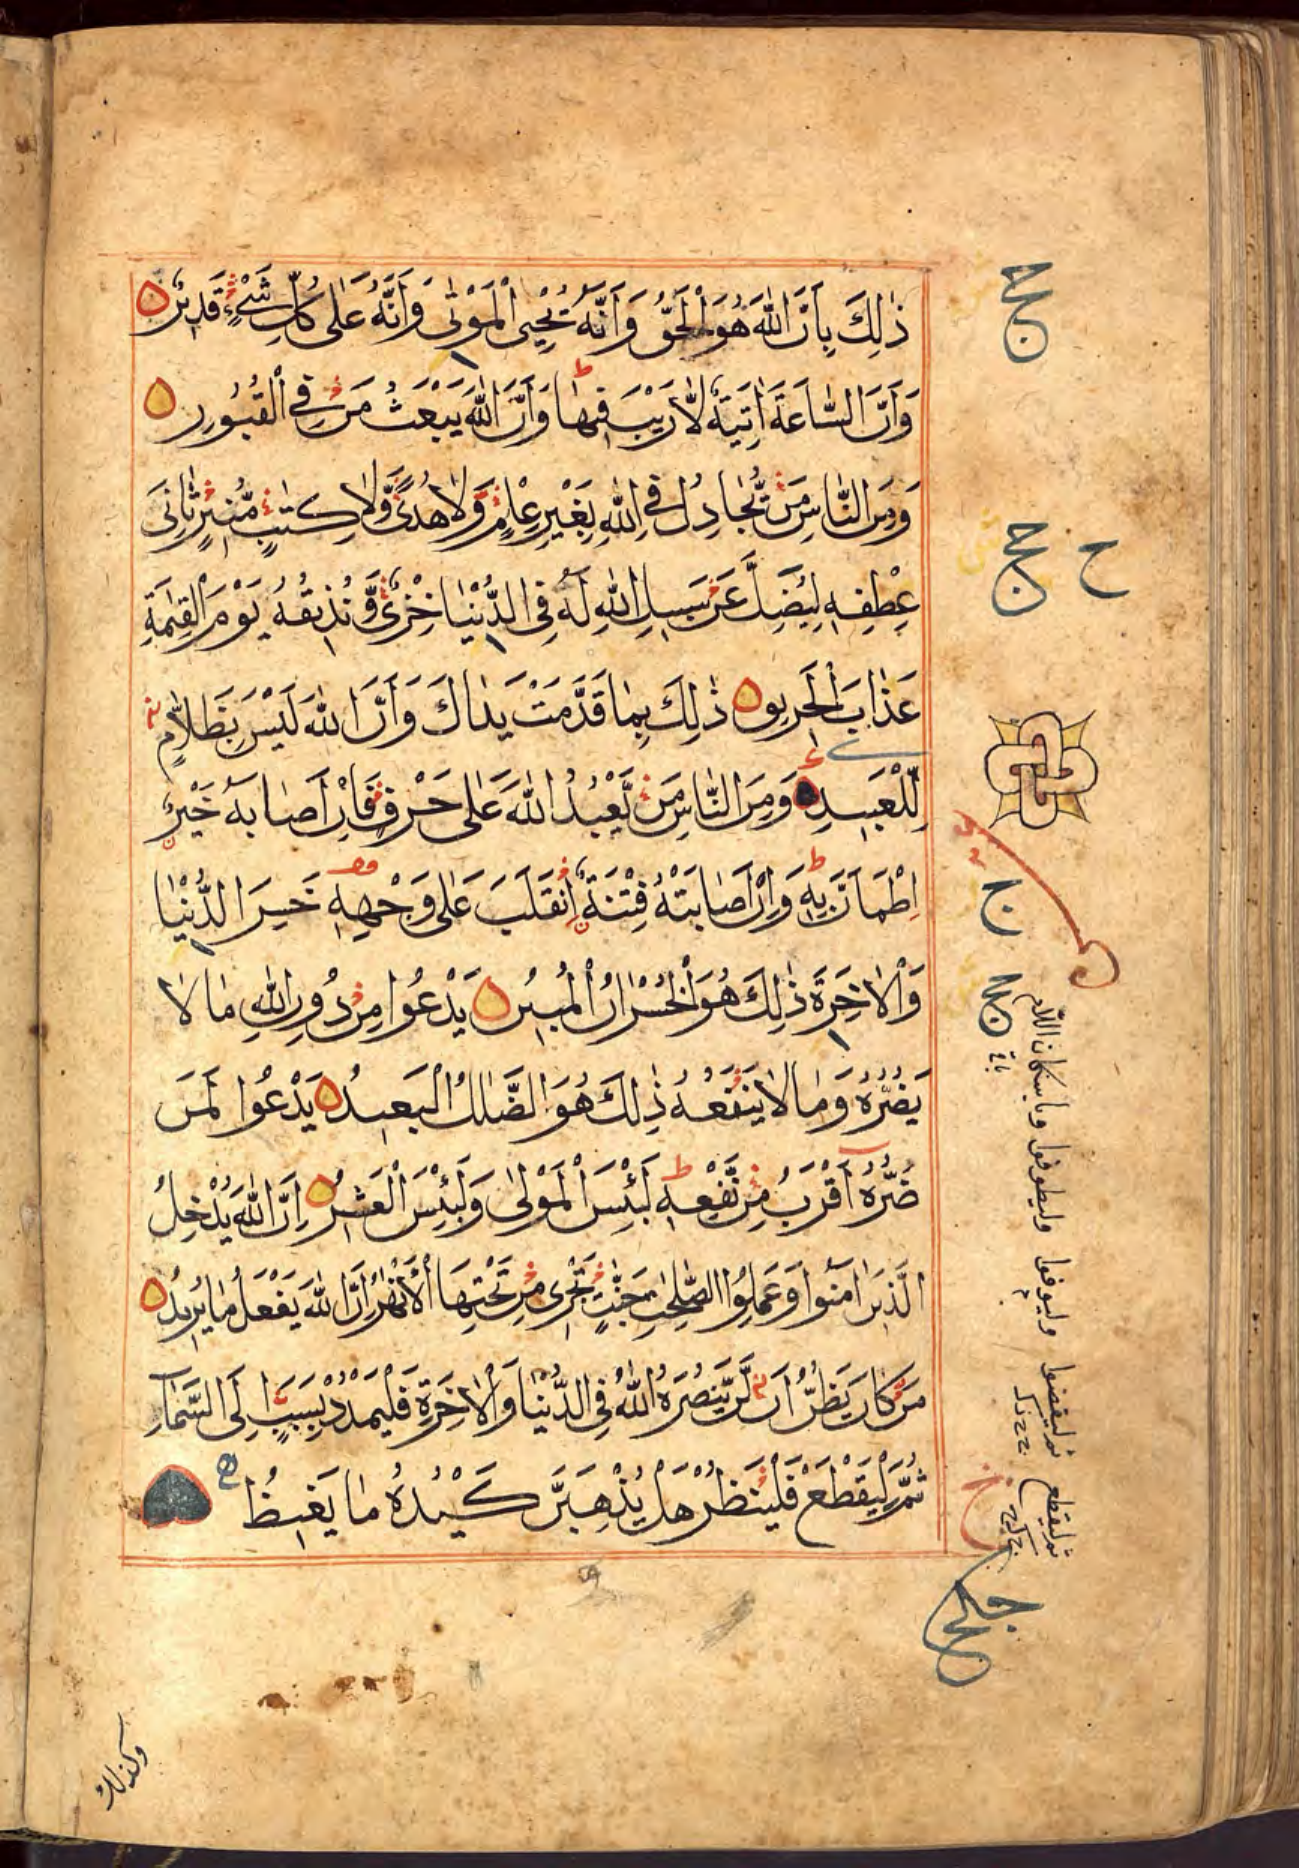 ذٰلِكَ بِاَنَّ اللّٰهَ هُوَ الْحَقُّ وَاَنَّهٗ يُحْيِى الْمَوْتٰى وَاَنَّهٗ عَلٰى كُلِّ شَىْءٍ قَدِيْرٌ
وَاَنَّ السَّاعَةَ اٰتِيَةٌ لَّا رَيْبَ فِيْهَا وَاَنَّ اللّٰهَ يَبْعَثُ مَنْ فِى الْقُبُوْرِ
وَمِنَ النَّاسِ مَنْ يُّجَادِلُ فِى اللّٰهِ بِغَيْرِ عِلْمٍ وَّلَا هُدًى وَّلَا كِتٰبٍ مُّنِيْرٍ ثَانِىَ
عِطْفِهٖ لِيُضِلَّ عَنْ سَبِيْلِ اللّٰهِ لَهٗ فِى الدُّنْيَا خِزْىٌ وَّنُذِيْقُهٗ يَوْمَ الْقِيٰمَةِ
عَذَابَ الْحَرِيْقِ ذٰلِكَ بِمَا قَدَّمَتْ يَدَاكَ وَاَنَّ اللّٰهَ لَيْسَ بِظَلَّامٍ
لِّلْعَبِيْدِ وَمِنَ النَّاسِ مَنْ يَّعْبُدُ اللّٰهَ عَلٰى حَرْفٍ فَاِنْ اَصَابَهٗ خَيْرٌ
اِطْمَاَنَّ بِهٖ وَاِنْ اَصَابَتْهُ فِتْنَةٌ اِنْقَلَبَ عَلٰى وَجْهِهٖ خَسِرَ الدُّنْيَا
وَالْاٰخِرَةَ ذٰلِكَ هُوَ الْخُسْرَانُ الْمُبِيْنُ يَدْعُوْا مِنْ دُوْنِ اللّٰهِ مَا لَا
يَضُرُّهٗ وَمَا لَا يَنْفَعُهٗ ذٰلِكَ هُوَ الضَّلٰلُ الْبَعِيْدُ يَدْعُوْا لَمَنْ
ضَرُّهٗ اَقْرَبُ مِنْ نَّفْعِهٖ لَبِئْسَ الْمَوْلٰى وَلَبِئْسَ الْعَشِيْرُ اِنَّ اللّٰهَ يُدْخِلُ
الَّذِيْنَ اٰمَنُوْا وَعَمِلُوا الصّٰلِحٰتِ جَنّٰتٍ تَجْرِىْ مِنْ تَحْتِهَا الْاَنْهٰرُ اِنَّ اللّٰهَ يَفْعَلُ مَا يُرِيْدُ
مَنْ كَانَ يَظُنُّ اَنْ لَّنْ يَّنْصُرَهُ اللّٰهُ فِى الدُّنْيَا وَالْاٰخِرَةِ فَلْيَمْدُدْ بِسَبَبٍ اِلَى السَّمَآءِ
ثُمَّ لْيَقْطَعْ فَلْيَنْظُرْ هَلْ يُذْهِبَنَّ كَيْدُهٗ مَا يَغِيْظُ
ثم ليقطع
ثم ليقضوا
وليوفوا
وليطوفوا وباسكان اللام
وكذلك